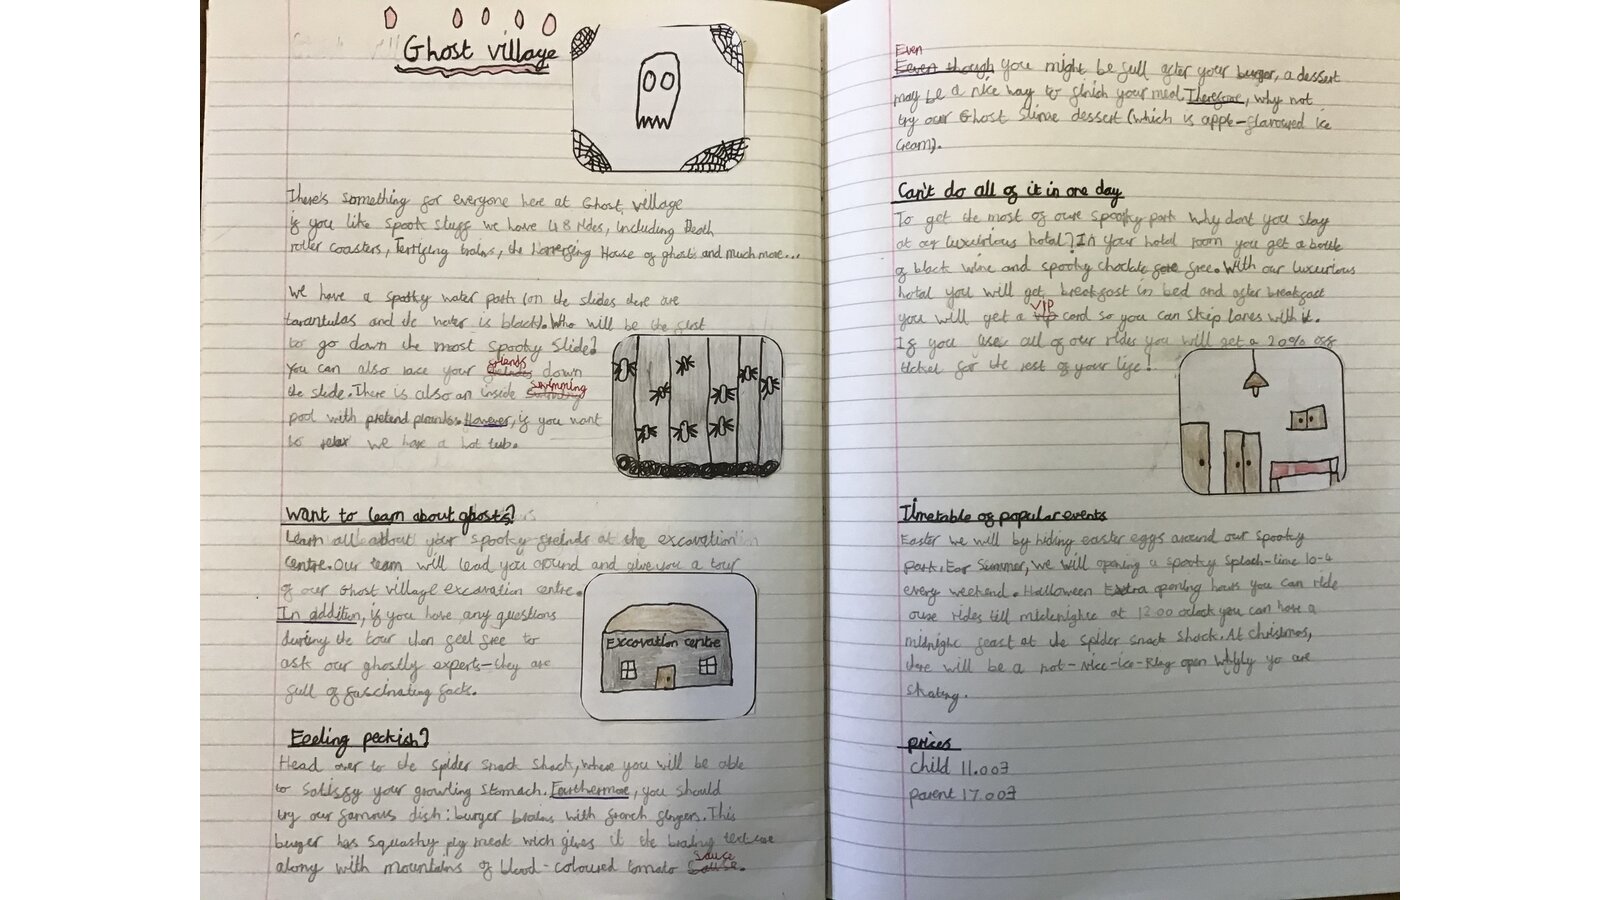 Ghost village
There's something for everyone here at Ghost village
if you like spook stuff we have 48 rides, including Death
roller coasters, Terrifying trains, the Horrerfying House of ghosts and much more...
We have a spooky water park (on the slides there are
tarantulas and the water is black). Who will be the first
to go down the most spooky slide?
friends
You can also race your down
swimming
the slide. There is also an inside
pool with pretend piranhs. However, if you want
to relax we have a hot tub.
Want to learn about ghosts?
Learn all about your spooky friends at the excavation
centre. Our team will lead you around and give you a tour
of our Ghost village excavation centre.
In addition, if you have any questions
during the tour then feel free to
ask our ghostly experts-they are
full of fascinating facts.
Excavation centre
Feeling peckish?
Head over to the spider snack shack, where you will be able
to satisfy your growling stomach. Fourthermore, you should
try our famous dish: burger brains with french fingers. This
burger has squashy pig meat wich gives it the brainy texture
sauce
along with mountains of blood-coloured tomato
Even
Eeven though you might be full after your burger, a dessert
may be a nice way to finish your meal Therefore, why not
try our Ghost Slime dessert (which is apple-flavoured ice
cream).
Can't do all of it in one day
To get the most of oure spooky park why dont you stay
at our luxurious hotel? In your hotel room you get a bottle
of black wine and spooky choclate free. With our luxurious
hotal you will get breakfast in bed and after breakfast
VIP
you will get a vip card so you can skip lanes with it.
If you use all of our rides you will get a 20% off
ticket for the rest of your life!
Timetable of popular events
Easter we will by hiding easter eggs around our spooky
park. For Summer, we will opening a spooky splash-time 10-4
every weekend. Halloween Extra opening hours you can ride
oure rides till midenighte at 12:00 oclock you can have a
midnight feast at the spider snack shack. At christmas,
there will be a not-nice-ice-Ring open yo are
skating.
prices
child 11.00£
parent 17.00£